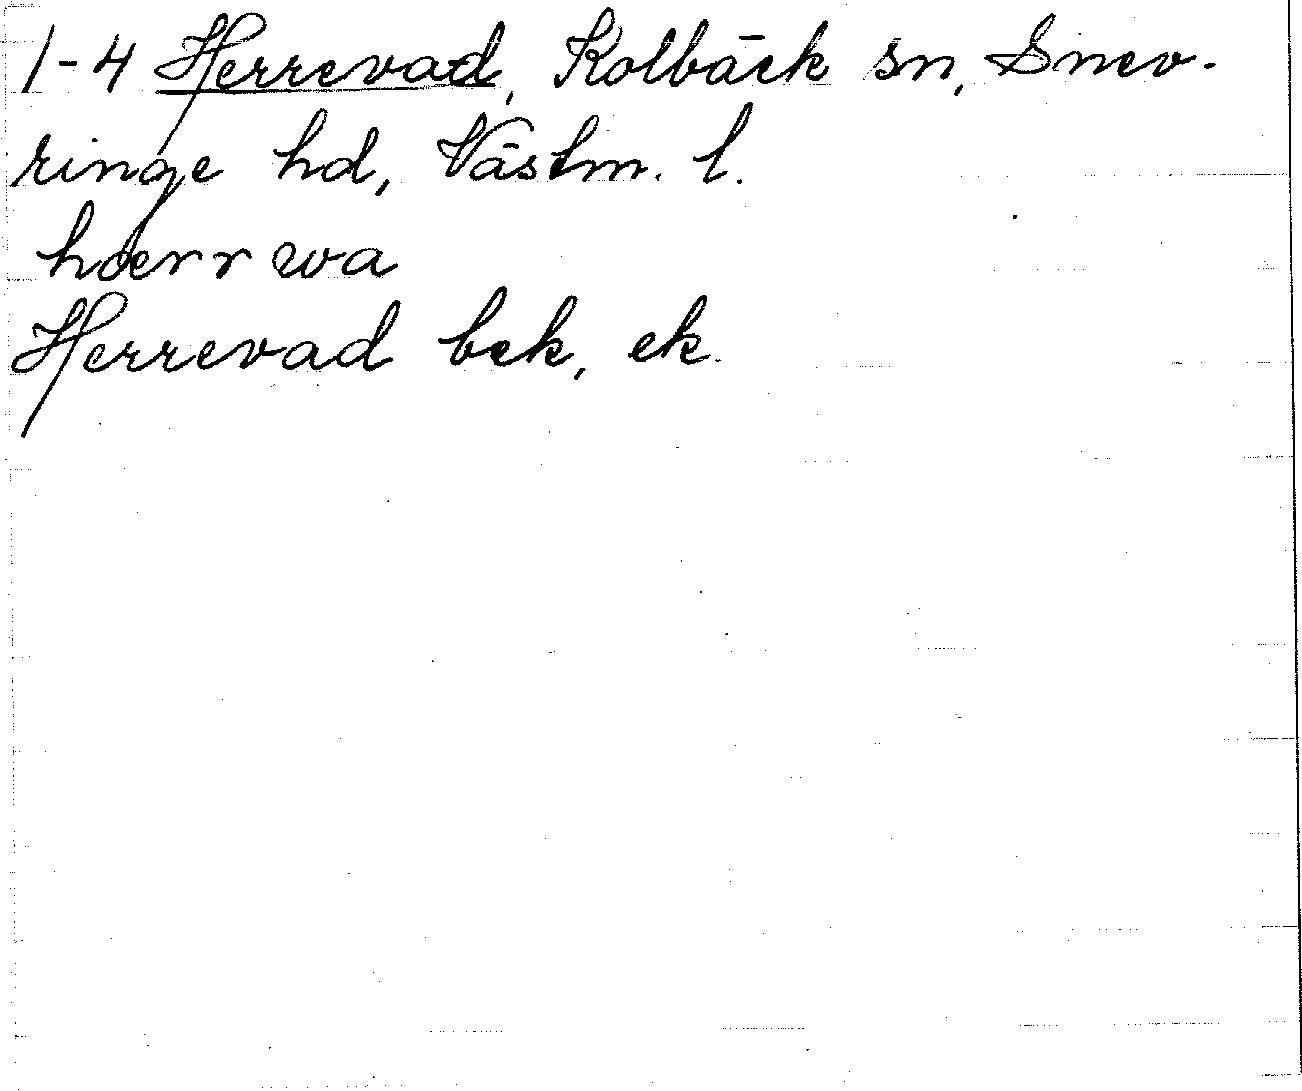 1-4 Herrevad, Kolbäck sn, Snev-
ringe hd, Västm. l.
hærrwa
Herrevad bek, ek.